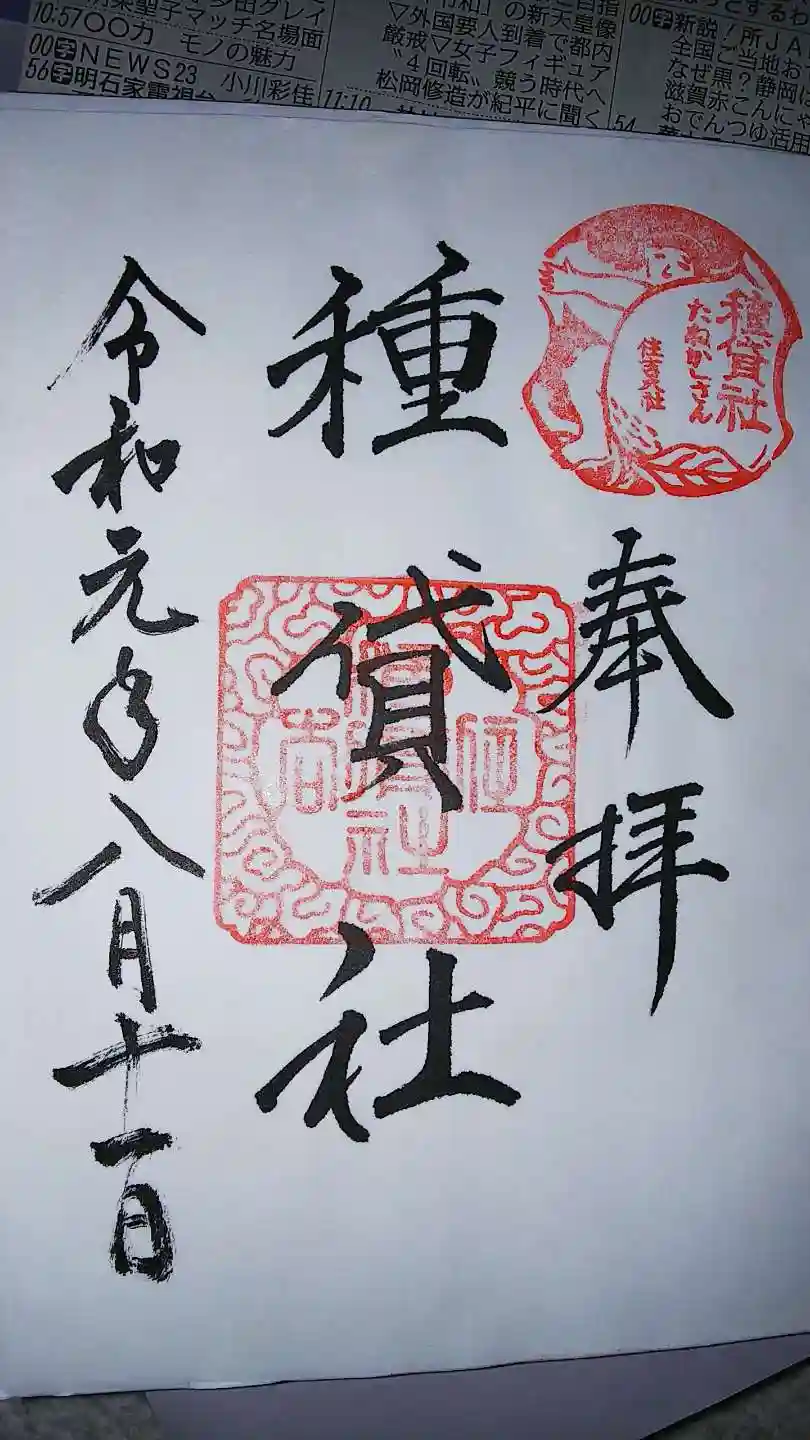 奉拝
種貸社
令和元年八月十一日
種貸社
たねかしさん
住吉大社
種貸社
指
「令和」の新天皇像
▽外国要人到着で都内
厳戒▽女子フィギュア
〝4回転〟競う時代へ
松岡修造が紀平に聞く
00字新説!所JA
全国ご当地お
なぜ黒?静岡は
滋賀赤こんにゃ
おでんつゆ活用
54
聖子マッチ名場面
10:57〇〇力 モノの魅力
00字NEWS23 小川彩佳
56字明石家電視台
11:10